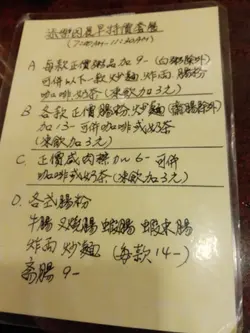 早晨特價套餐
A 每款正價粥品加9-(白粥除外)
可併以下一款炒麵 炸両 腸粉
咖啡或奶茶(凍飲加3元)
B. 各款正價腸粉,炒麵(齋腸除外)
加13-可併咖啡或奶茶
(凍飲加3元)
C. 正價咸肉糭加6-可併
咖啡或奶茶(凍飲加3元)
D. 各式腸粉
牛腸 叉燒腸 蝦腸 蝦米腸
炸両 炒麵 (每款14-)
齋腸 9-